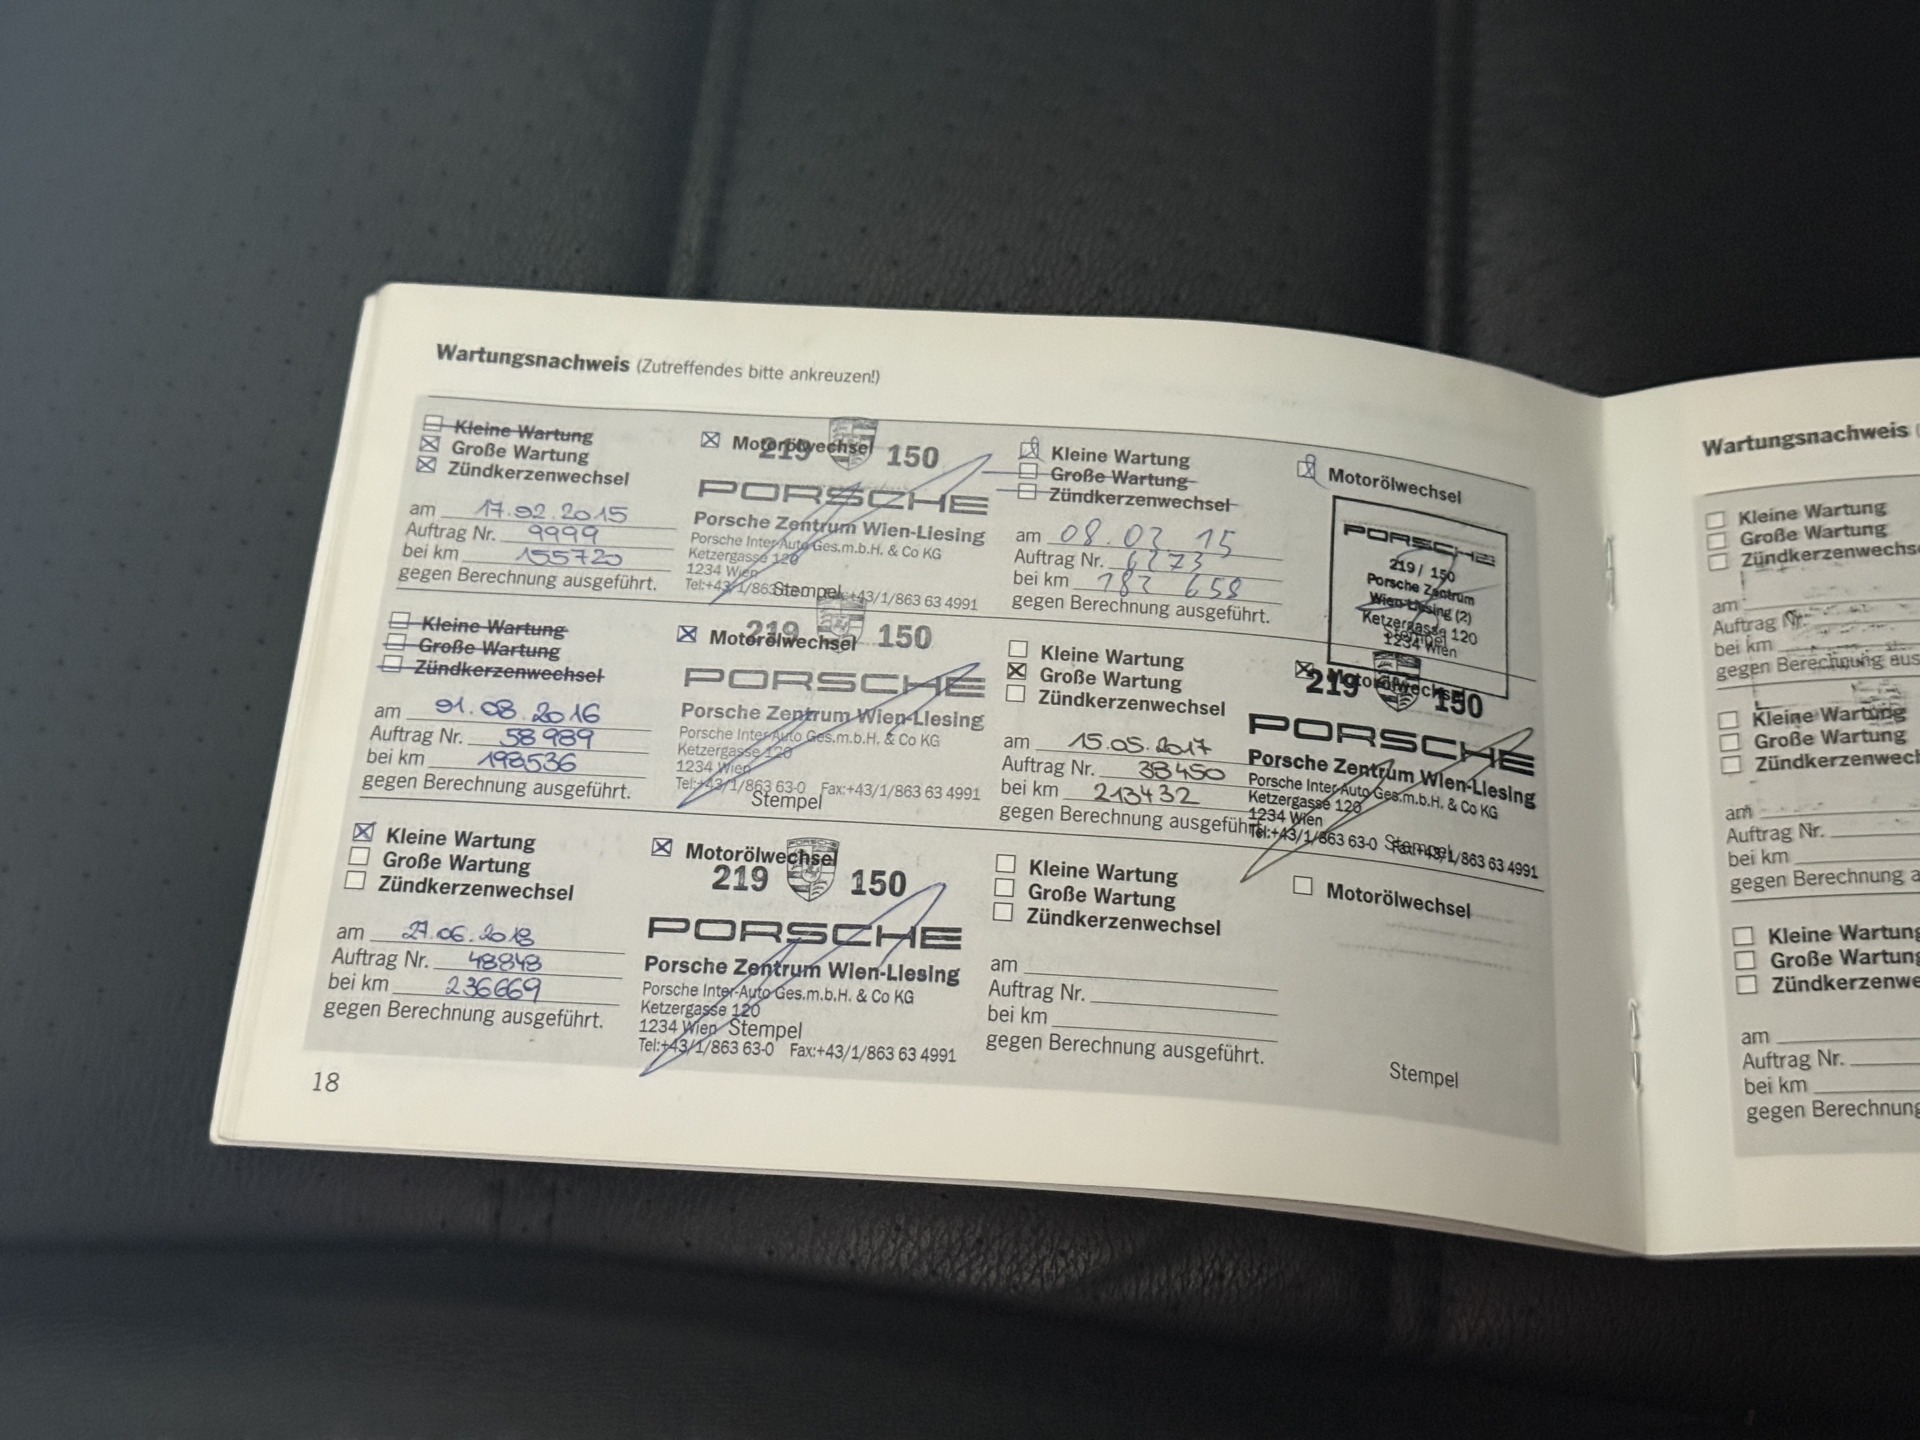 Wartungsnachweis (Zutreffendes bitte ankreuzen!)
Kleine Wartung
Große Wartung
Zündkerzenwechsel
am 17.02.2015
Auftrag Nr. 9999
bei km 155720
gegen Berechnung ausgeführt.
Motorölwechsel
219 150
PORSCHE
Porsche Zentrum Wien-Liesing
Porsche Inter Auto Ges.m.b.H. & Co KG
Ketzergasse 120
1234 Wien
Tel:+43/1/863 Stempel :+43/1/863 63 4991
Kleine Wartung
Große Wartung
Zündkerzenwechsel
am 08.02 15
Auftrag Nr.
bei km 182 658
gegen Berechnung ausgeführt.
Motorölwechsel
PORSCHE
219 / 150
Porsche Zentrum
Wien-Liesing (2)
Ketzergasse 120
Stempel
1234 Wien
Kleine Wartung
Große Wartung
Zündkerzenwechsel
am 01.08.2016
Auftrag Nr. 58989
bei km 198536
gegen Berechnung ausgeführt.
Motorölwechsel
219 150
PORSCHE
Porsche Zentrum Wien-Liesing
Porsche Inter Auto Ges.m.b.H. & Co KG
Ketzergasse 120
1234 Wien
Tel:+43/1/863 63-0 Fax:+43/1/863 63 4991
Stempel
Kleine Wartung
Große Wartung
Zündkerzenwechsel
am 15.05.2017
Auftrag Nr. 38450
bei km 213432
gegen Berechnung ausgeführt.
Motorölwechsel
219 150
PORSCHE
Porsche Zentrum Wien-Liesing
Porsche Inter Auto Ges.m.b.H. & Co KG
Ketzergasse 120
1234 Wien
Tel:+43/1/863 63-0 Fax:+43/1/863 63 4991
Stempel
Kleine Wartung
Große Wartung
Zündkerzenwechsel
am 27.06.2018
Auftrag Nr. 48848
bei km 236669
gegen Berechnung ausgeführt.
Motorölwechsel
PORSCHE
219 150
PORSCHE
Porsche Zentrum Wien-Liesing
Porsche Inter-Auto Ges.m.b.H. & Co KG
Ketzergasse 120
1234 Wien Stempel
Tel:+43/1/863 63-0 Fax:+43/1/863 63 4991
Kleine Wartung
Große Wartung
Zündkerzenwechsel
am
Auftrag Nr.
bei km
gegen Berechnung ausgeführt.
Motorölwechsel
Stempel
18
Wartungsnachweis (
Kleine Wartung
Große Wartung
Zündkerzenwechse
am
Auftrag Nr.
bei km
gegen Berechnung aus
Kleine Wartung
Große Wartung
Zündkerzenwech
am
Auftrag Nr.
bei km
gegen Berechnung a
Kleine Wartung
Große Wartung
Zündkerzenwe
am
Auftrag Nr.
bei km
gegen Berechnung